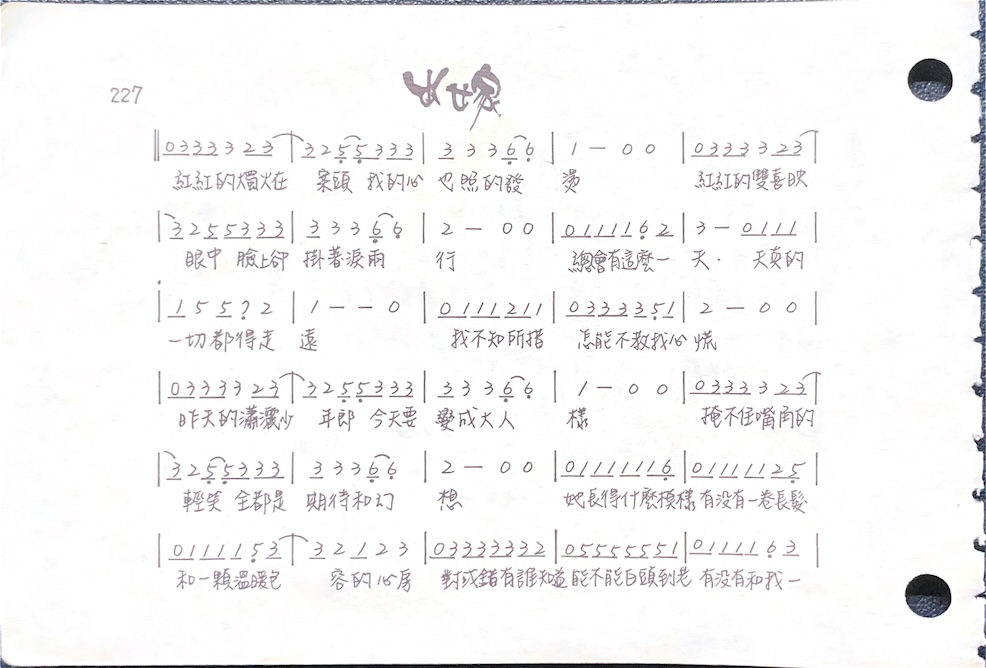 227
出嫁
‖0333323|3255333|33366|1－00|0333323|
紅紅的燭火在 案頭 我的心 也照的發 燙 紅紅的雙喜映
|3255333|33366|2－00|0111162|3－0111|
眼中 臉上卻 掛著淚兩 行 總會有這麼一 天． 天真的
|155?2|1－－0|0111211|0333351|2－00|
一切都得走 遠 我不知所措 怎能不教我心 慌
|0333323|3255333|33366|1－00|0333323|
昨天的瀟灑少 年郎 今天要 變成大人 樣 掩不住嘴角的
|3255333|33366|2－00|01111116|0111125|
輕笑 全都是 期待和幻 想 她長得什麼模樣 有没有一卷長髮
|0111153|32123|03333332|05555551|0111163|
和一顆溫暖包 容的心房 對或錯有誰知道 能不能白頭到老 有没有和我一